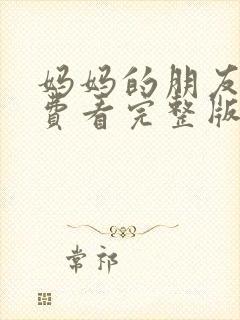 妈妈的朋友
费看完整版
常祁